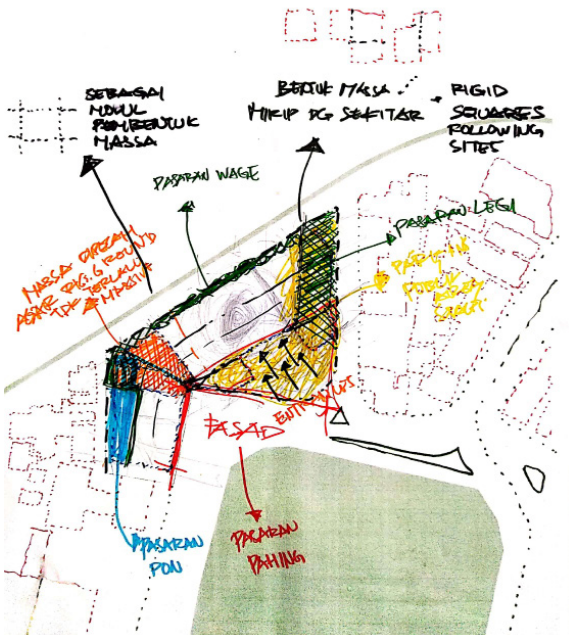 SEBAGAI
MODUL
PEMBENTUK
MASSA
BENTUK MASSA
MIRIP DG SEKITAR
RIGID
SQUARES
FOLLOWING
SITES
PASARAN WAGE
PASARAN LEGI
MASSA DIPECAH
AGAR BIG. GROUND
TDK TERLALU
PUBLIK
ENTRANCES
FASAD
PASARAN
PAHING
PASARAN
PON